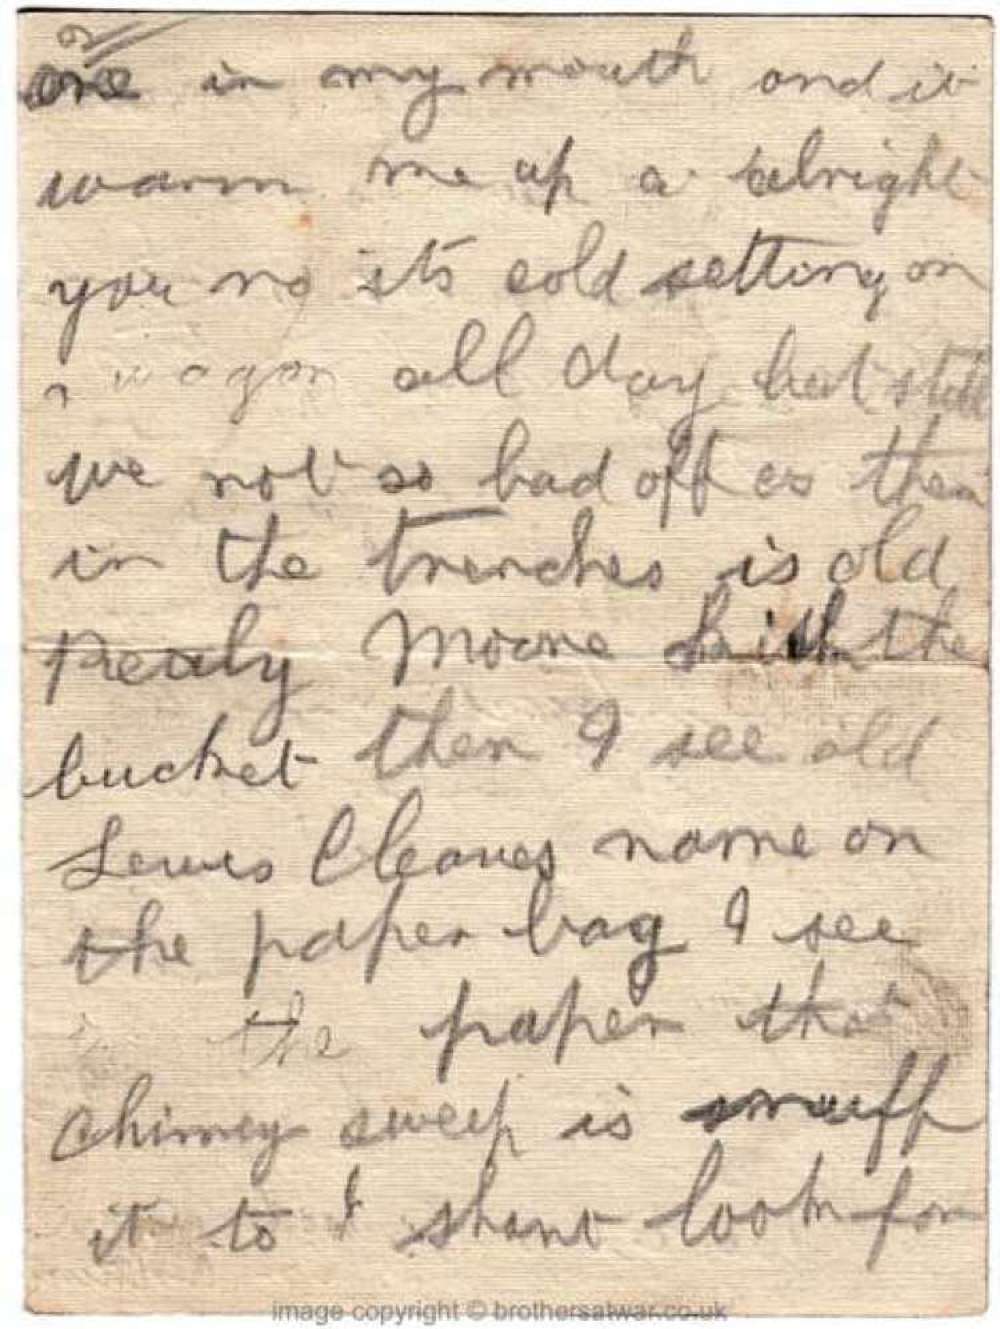 one in my mouth and it
warm me up a alright
you no its cold setting on
a wagon all day but still
we not so bad off as them
in the trenches is old
Moore the
bucket then I see old
Lewis Cleaves name on
the paper bag I see
in the paper that
chimney sweep is snuff
it to I shant look for
image copyright © brothersatwar.co.uk